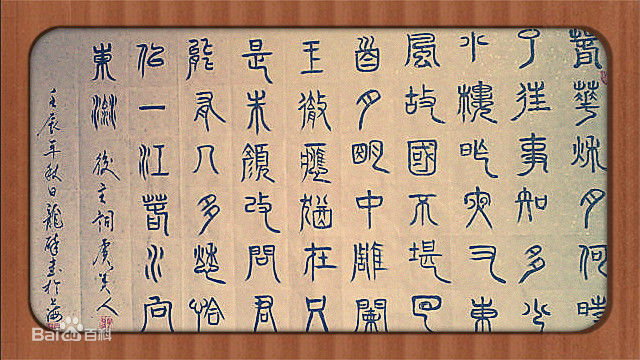 春華秋月何時
了往事知多少
小樓昨夜又東
風故國不堪回
首月明中雕闌
玉徹應猶在只
是朱顏改問君
能有几多愁恰
似一江春水向
東流 後主詞虞美人
壬辰年秋日龍書於上海
Baidu百科